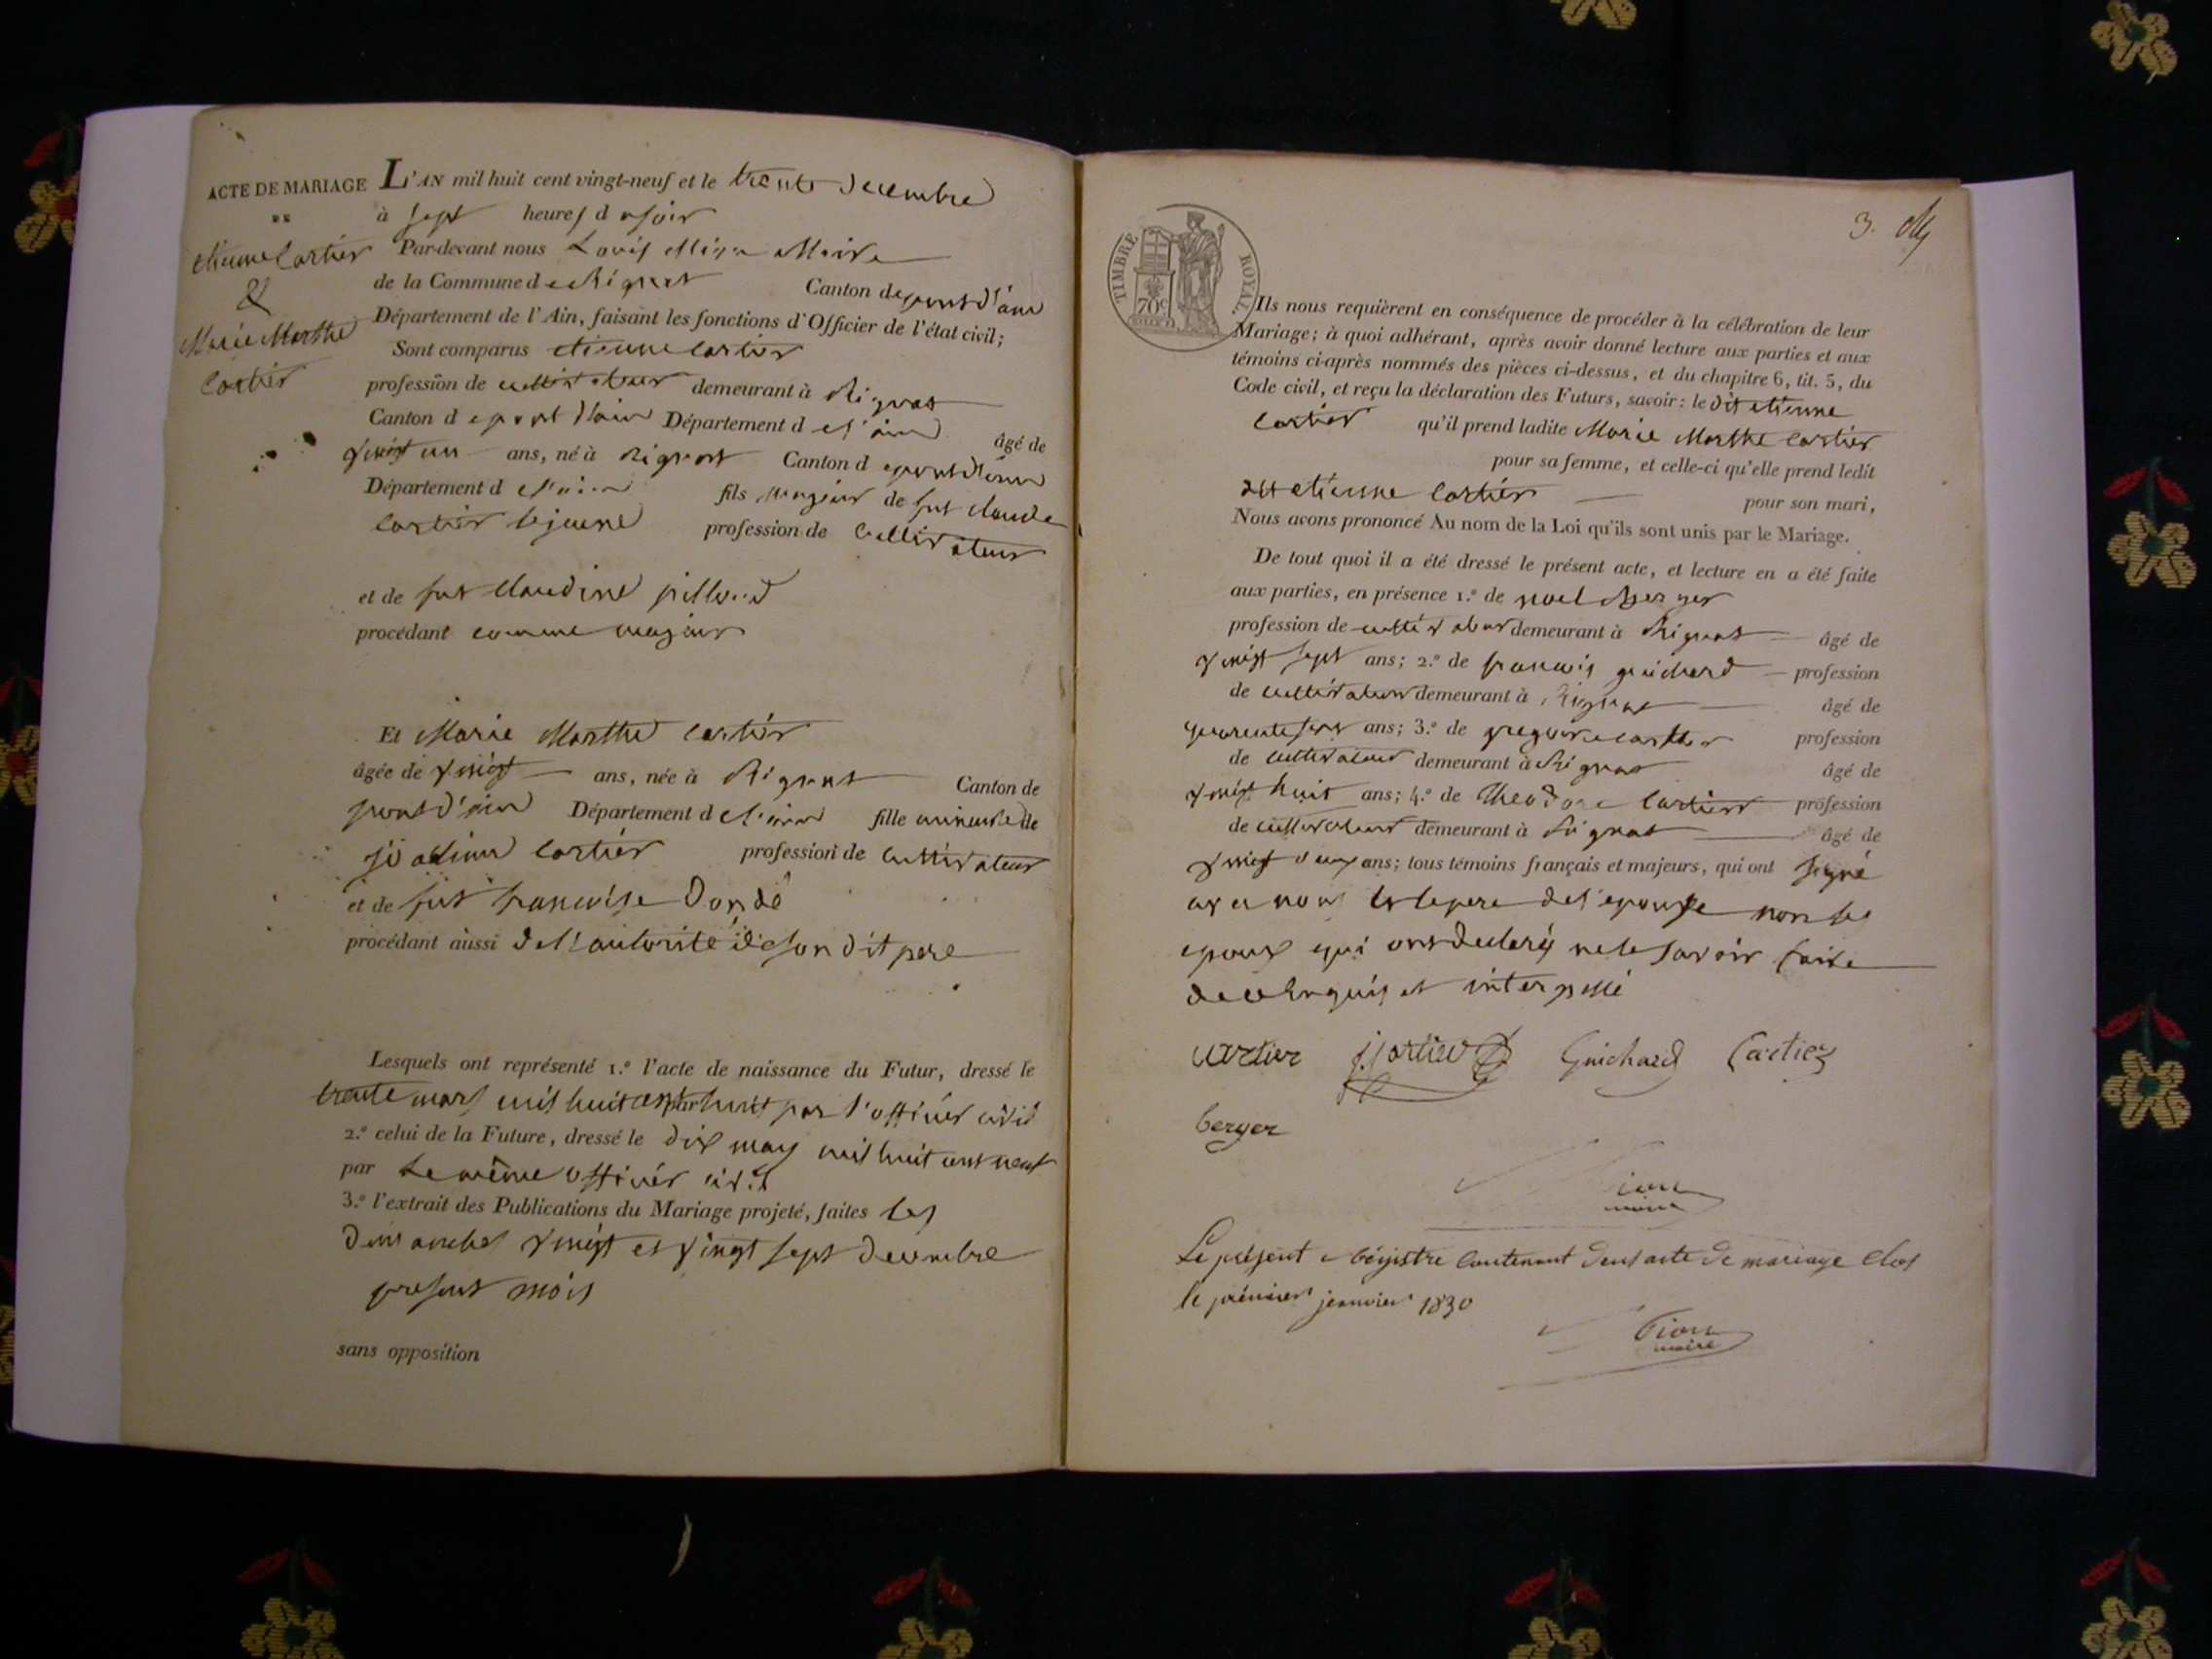 ACTE DE MARIAGE
DE
etienne Cartier
&
Marie Marthe
Cartier
L'AN mil huit cent vingt-neuf et le trente decembre
à sept heures d u soir
Par-devant nous Louis Maire
de la Commune d e Rignat Canton de pont d'ain
Département de l'Ain, faisant les fonctions d'Officier de l'état civil;
Sont comparus etienne Cartier
profession de cultivateur demeurant à Rignat
Canton d e pont d'ain Département d e l'ain âgé de
vingt un ans, né à Rignat Canton d e pont d'ain
Département d e l'ain fils majeur de fut claude
Cartier lejeune profession de Cultivateur
et de fut Claudine pilloud
procédant comme majeur
Et Marie Marthe Cartier
âgée de vingt ans, née à Rignat Canton de
pont d'ain Département d e l'ain fille mineure de
joachim Cartier profession de Cultivateur
et de fut francoise Dondé
procédant aussi de l'autorité de son dit pere
Lesquels ont représenté 1.º l'acte de naissance du Futur, dressé le
trente mars mil huit cent huit par l'officier civil
2.º celui de la Future, dressé le dix may mil huit cent neuf
par Le même officier civil
3.º l'extrait des Publications du Mariage projeté, faites les
dimanches vingt et vingt sept decembre
present mois
sans opposition
3.
TIMBRE ROYAL
70c
Ils nous requièrent en conséquence de procéder à la célébration de leur
Mariage; à quoi adhérant, après avoir donné lecture aux parties et aux
témoins ci-après nommés des pièces ci-dessus, et du chapitre 6, tit. 5, du
Code civil, et reçu la déclaration des Futurs, savoir: le dit etienne
Cartier qu'il prend ladite Marie Marthe Cartier
pour sa femme, et celle-ci qu'elle prend ledit
dit etienne Cartier pour son mari,
Nous avons prononcé Au nom de la Loi qu'ils sont unis par le Mariage.
De tout quoi il a été dressé le présent acte, et lecture en a été faite
aux parties, en présence 1.º de noel Berger
profession de cultivateur demeurant à Rignat âgé de
vingt sept ans; 2.º de francois guichard profession
de cultivateur demeurant à Rignat âgé de
quarente sept ans; 3.º de gregoire Cartier profession
de cultivateur demeurant à Rignat âgé de
vingt huit ans; 4.º de Theodore Cartier profession
de cultivateur demeurant à Rignat âgé de
vingt deux ans; tous témoins français et majeurs, qui ont signé
avec nous et le pere de l'epouse non les
epoux qui ont declaré ne le savoir faire
de ce enquis et interpellé
Cartier j. Cartier Guichard Cartier
berger
maire
Le présent Régistre Contenant deux acte de mariage Clos
le prémier jeanvier 1830
maire